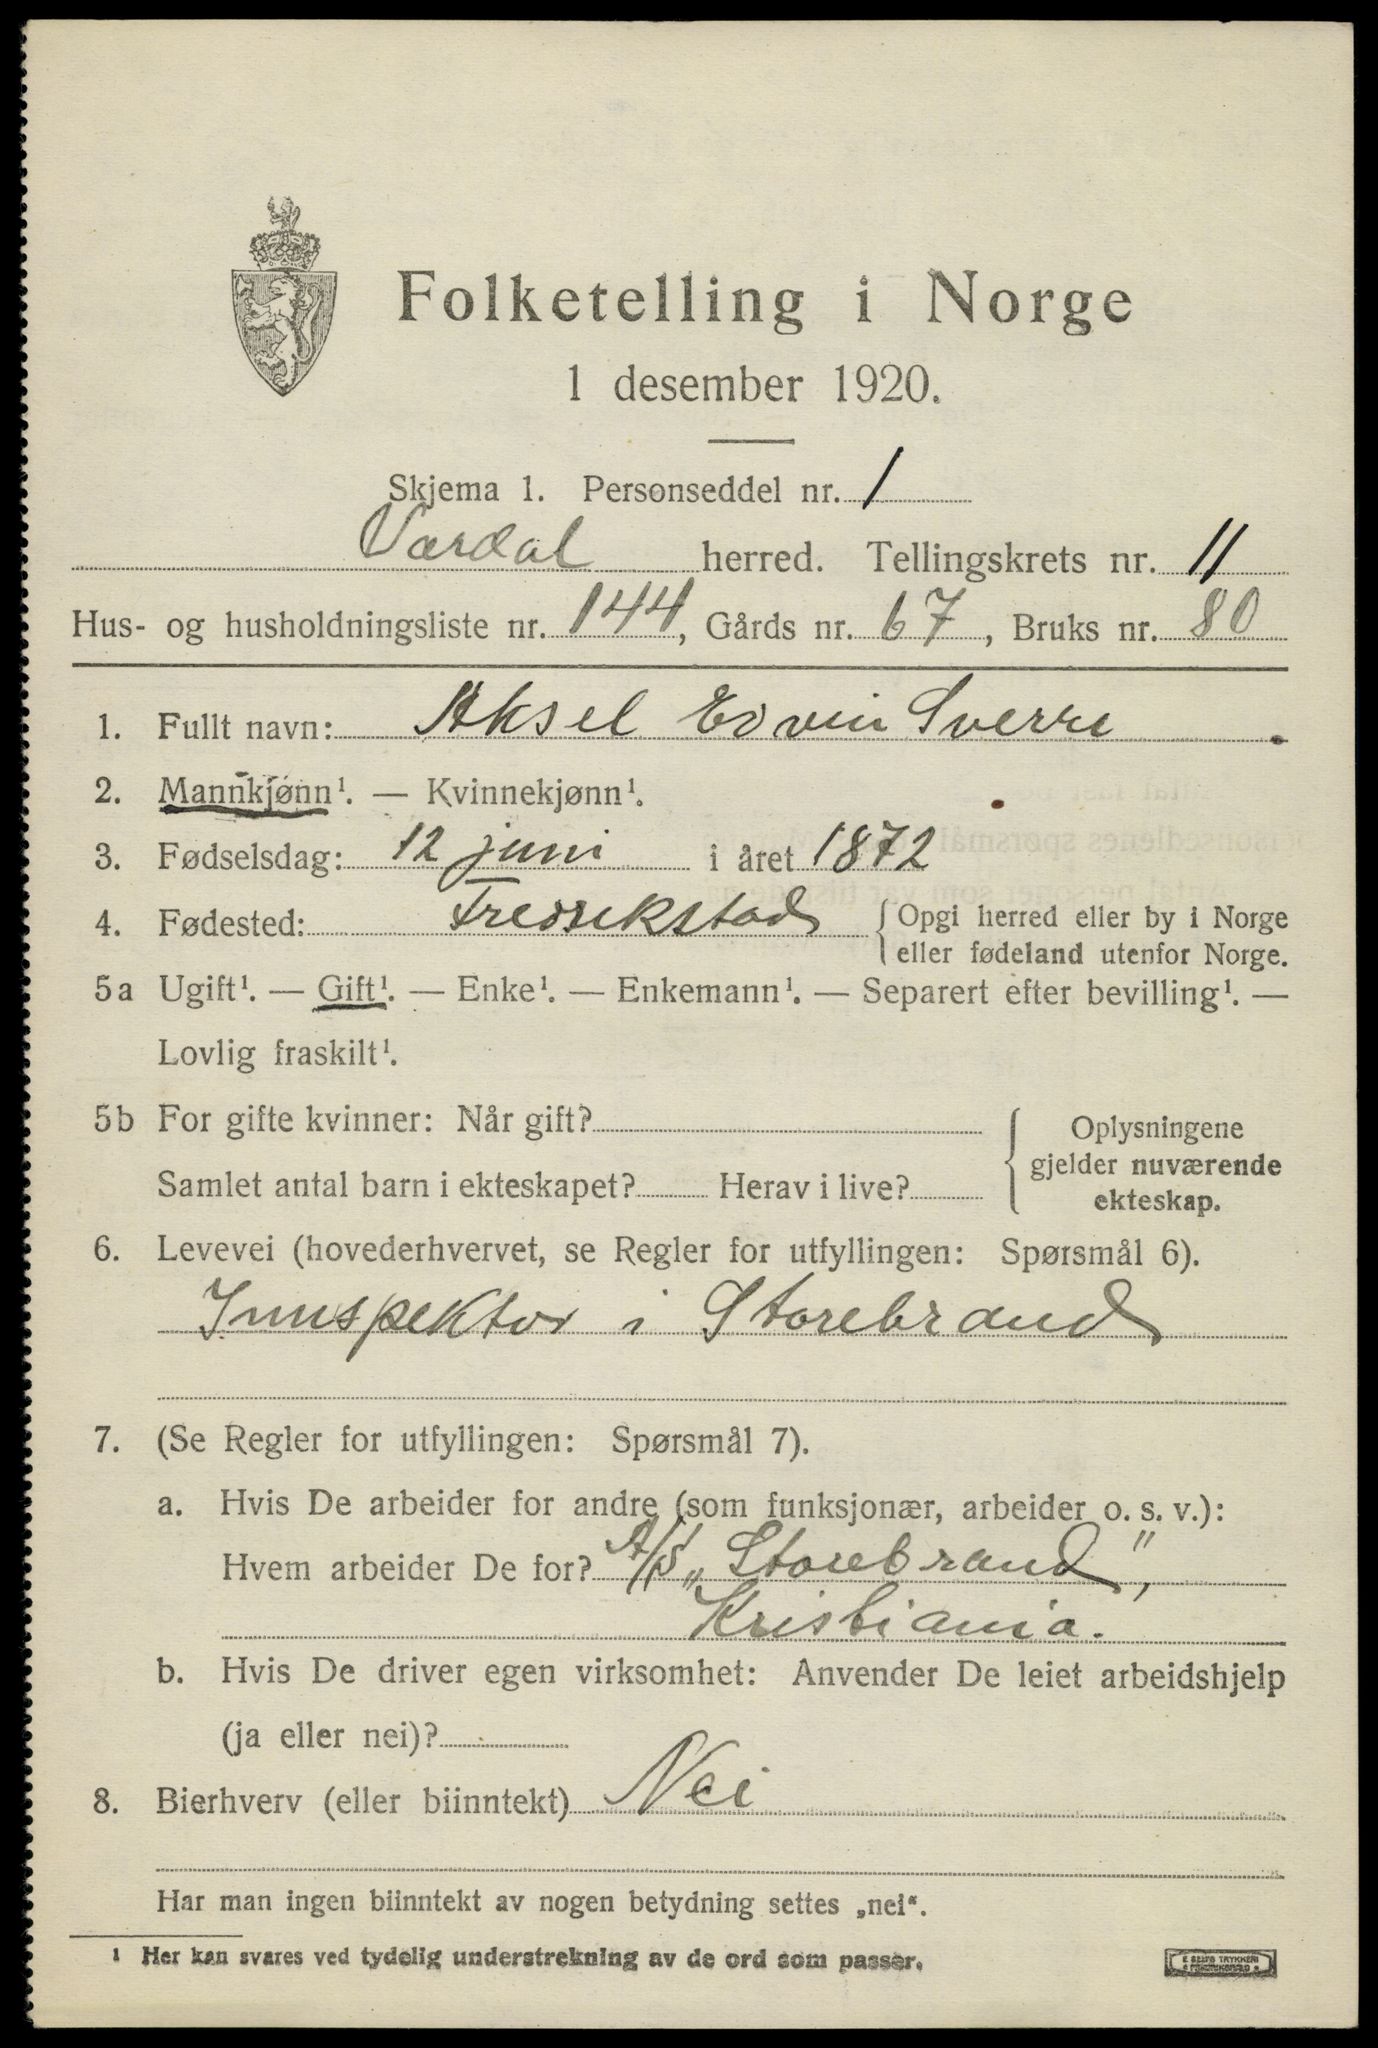 Folketelling i Norge
1 desember 1920.
Skjema 1. Personseddel nr. 1
Vardal herred. Tellingskrets nr. 11
Hus- og husholdningsliste nr. 144, Gårds nr. 67, Bruks nr. 80
1. Fullt navn: Aksel Edvin Sverre
2. Mannkjønn¹. — Kvinnekjønn¹.
3. Fødselsdag: 12 juni i året 1872
4. Fødested: Fredrikstad { Opgi herred eller by i Norge
eller fødeland utenfor Norge.
5a Ugift¹. — Gift¹. — Enke¹. — Enkemann¹. — Separert efter bevilling¹. —
Lovlig fraskilt¹.
5b For gifte kvinner: Når gift? { Oplysningene
gjelder nuværende
ekteskap.
Samlet antal barn i ekteskapet? Herav i live?
6. Levevei (hovederhvervet, se Regler for utfyllingen: Spørsmål 6).
Innspektør i Storebrand
7. (Se Regler for utfyllingen: Spørsmål 7).
a. Hvis De arbeider for andre (som funksjonær, arbeider o. s. v.):
Hvem arbeider De for? A/S „Storebrand",
Kristiania.
b. Hvis De driver egen virksomhet: Anvender De leiet arbeidshjelp
(ja eller nei)?
8. Bierhverv (eller biinntekt) Nei
Har man ingen biinntekt av nogen betydning settes „nei".
¹ Her kan svares ved tydelig understrekning av de ord som passer.